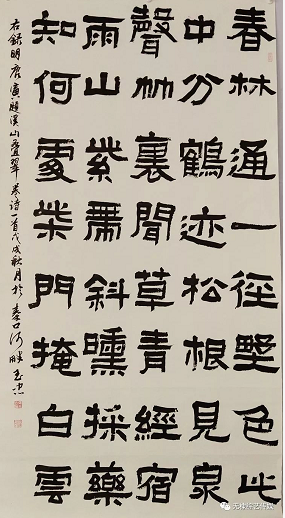 春林通一徑野色此
中分鶴迹松根見泉
聲竹裏聞草青經宿
雨山紫帶斜曛採藥
知何處柴門掩白雲
右錄明唐寅題溪山疊翠卷詩一首戊戌秋月於秦口河畔玉忠